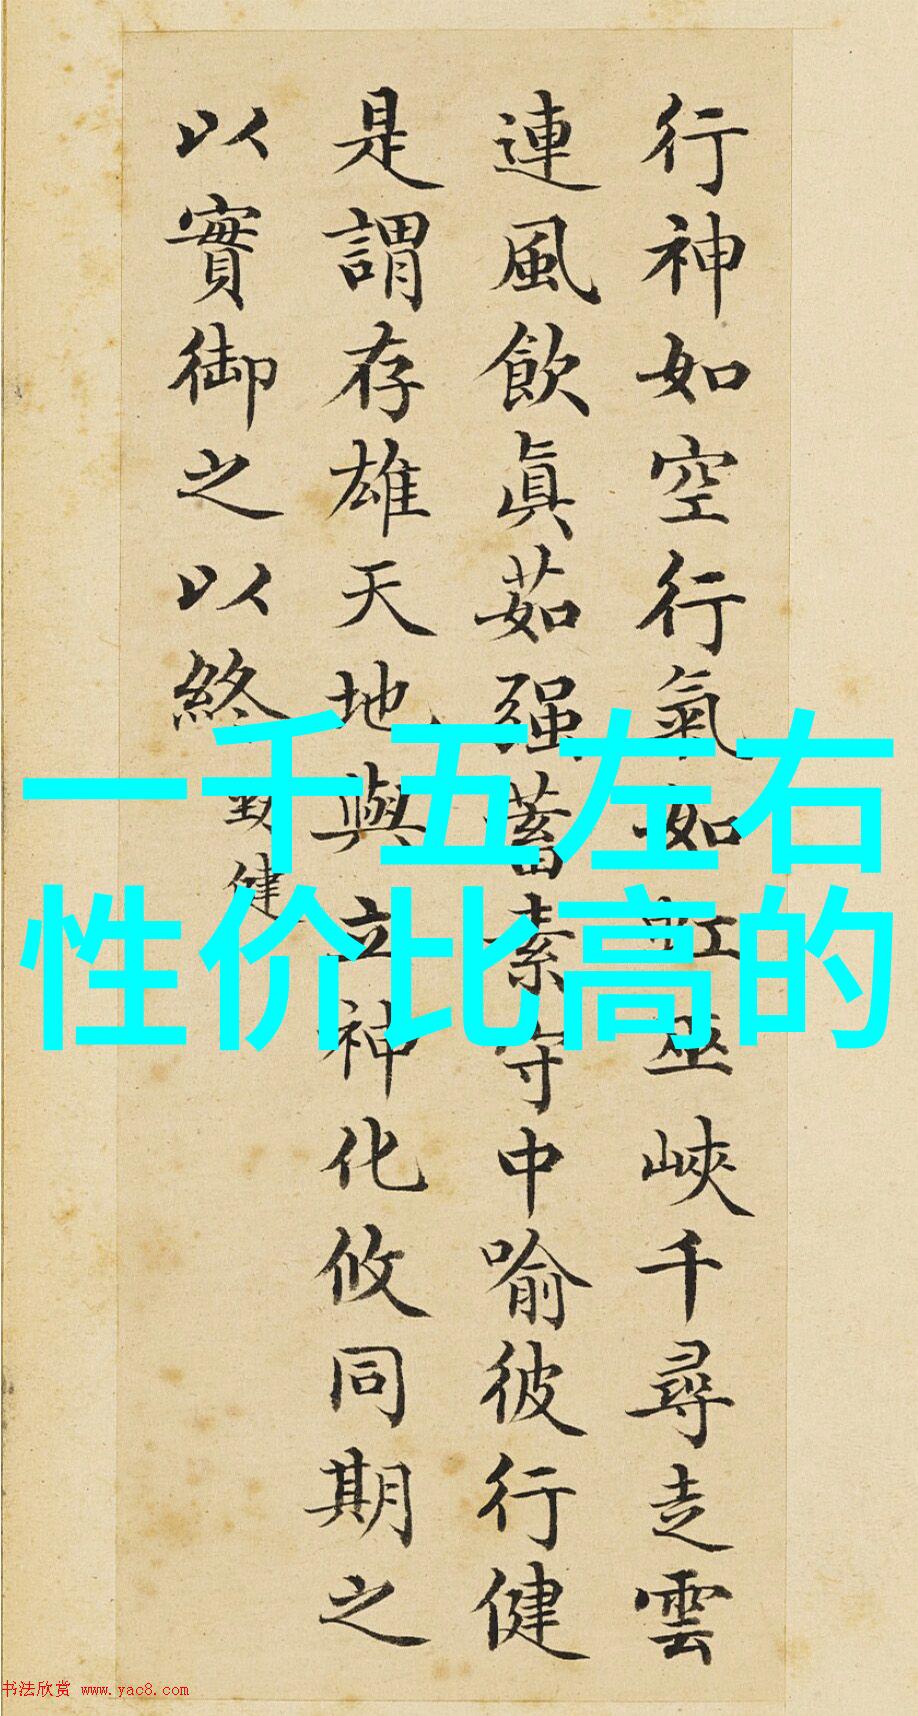 行神如空行氣如虹巫峽千尋走雲
連風飲眞茹强蓄素守中喻彼行健
是謂存雄天地與立神化攸同期之
以實御之以終
勁健
一千五左右
性价比高的
书法欣赏 www.yac8.com